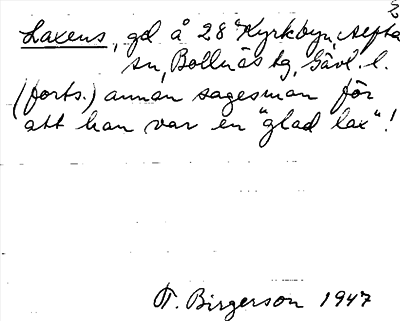 2
Laxens, gd å 28 Kyrkbyn, Alfta
sn, Bollnäs tg, Gävl. l.
(forts.) annan sagesman för
att han var en "glad lax"!
T. Birgerson 1947